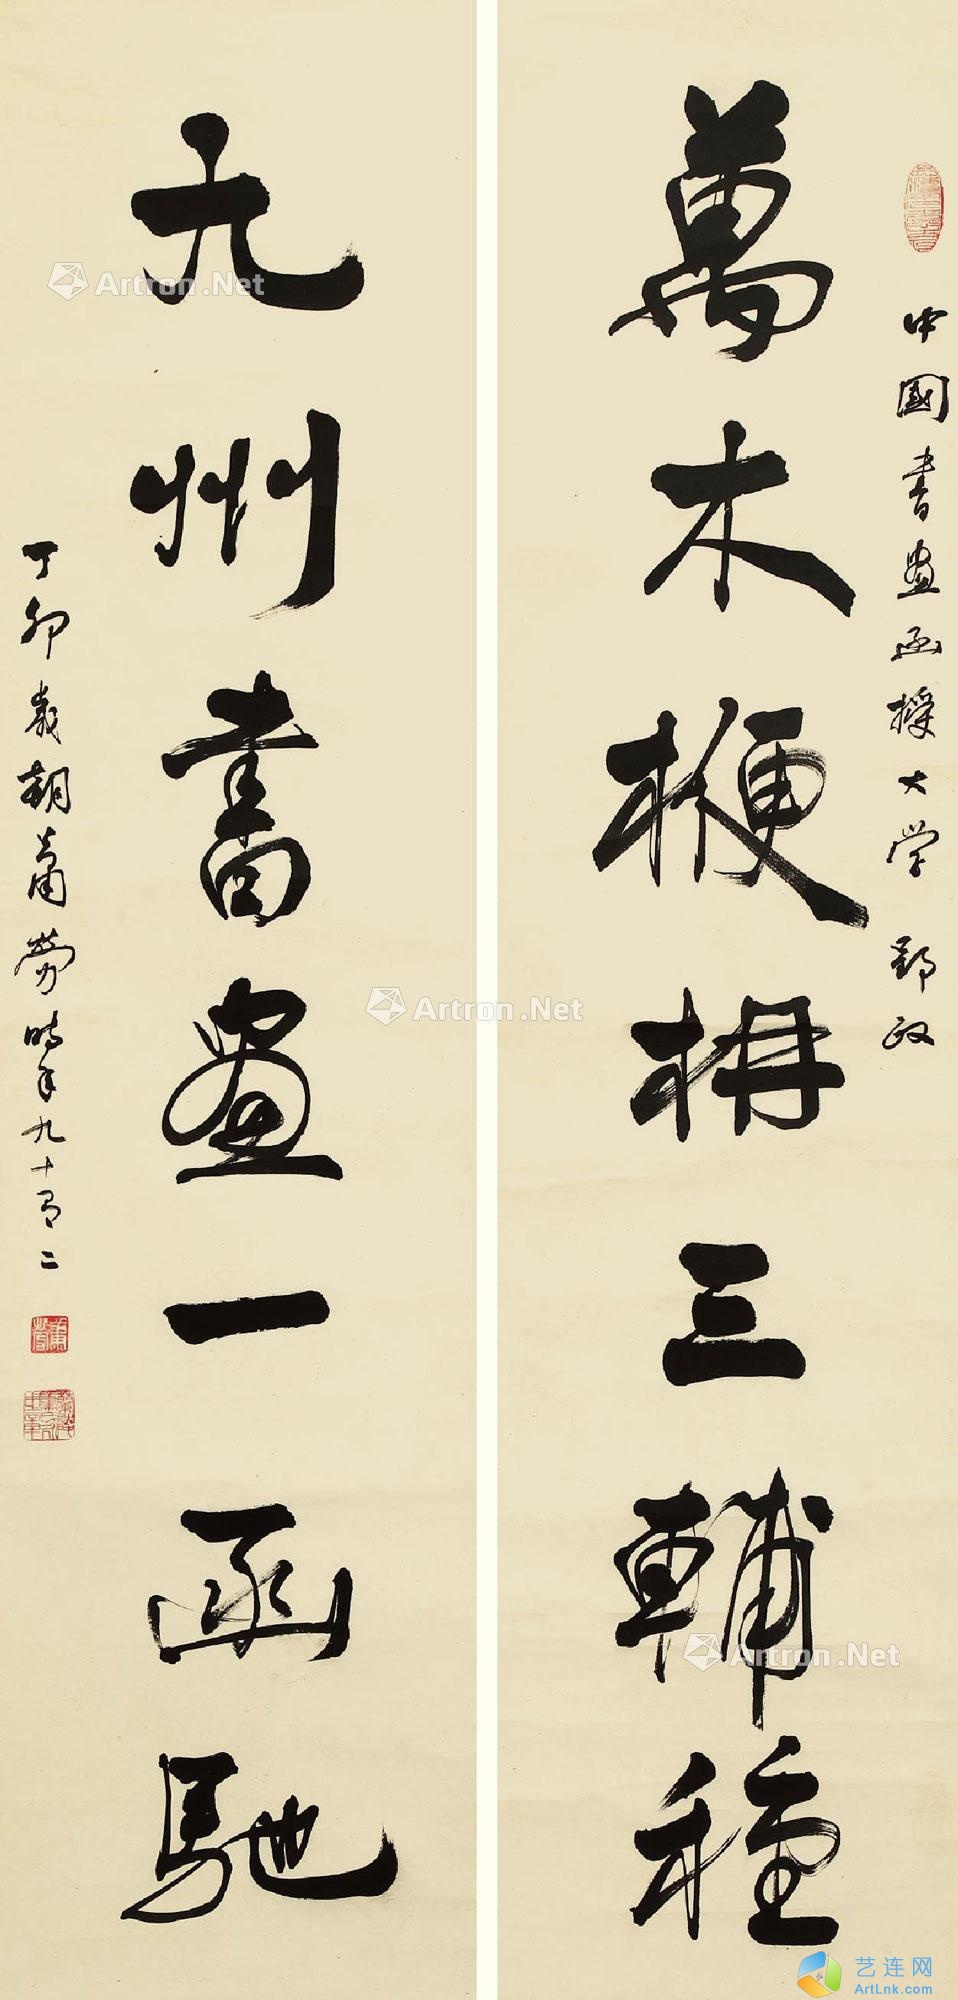 中國書畫函授大学 郢政
萬木楩柟三輔種
九州書畫一函馳
丁卯歲朝蕭勞時年九十有二
Artron.Net
Artron.Net
Artron.Net
艺连网
ArtLnk.com